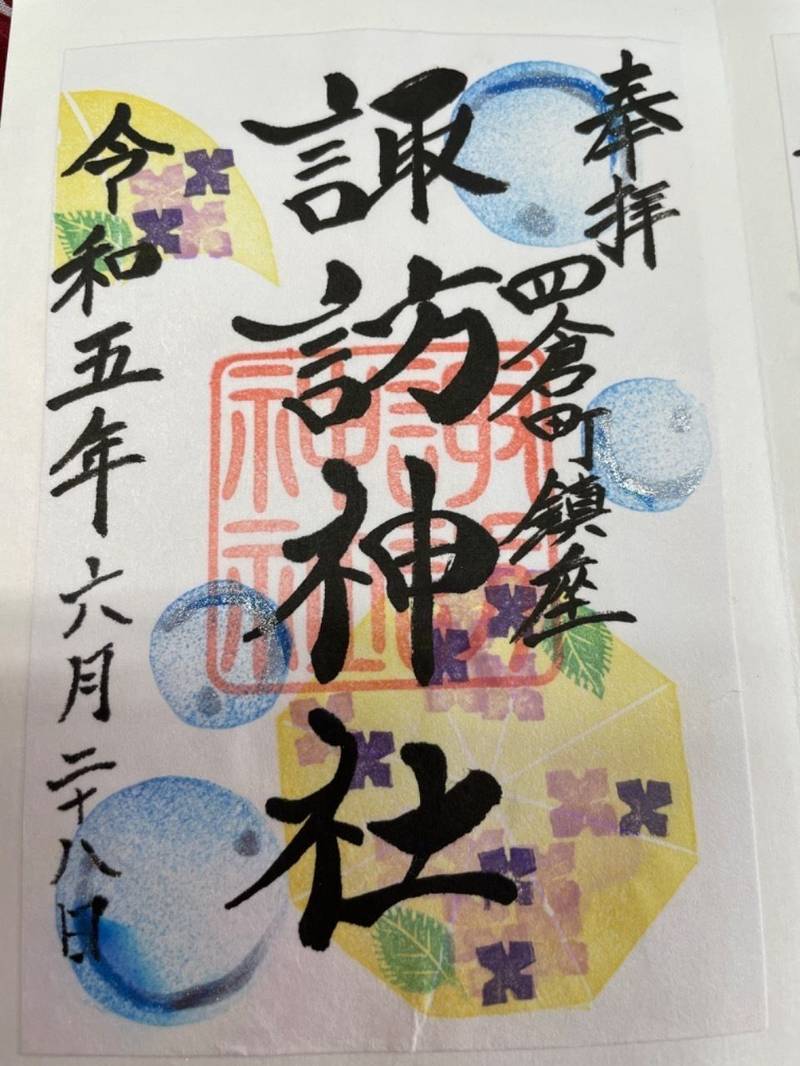 奉拝
四倉町鎮座
諏訪神社
諏訪神社
令和五年六月二十八日